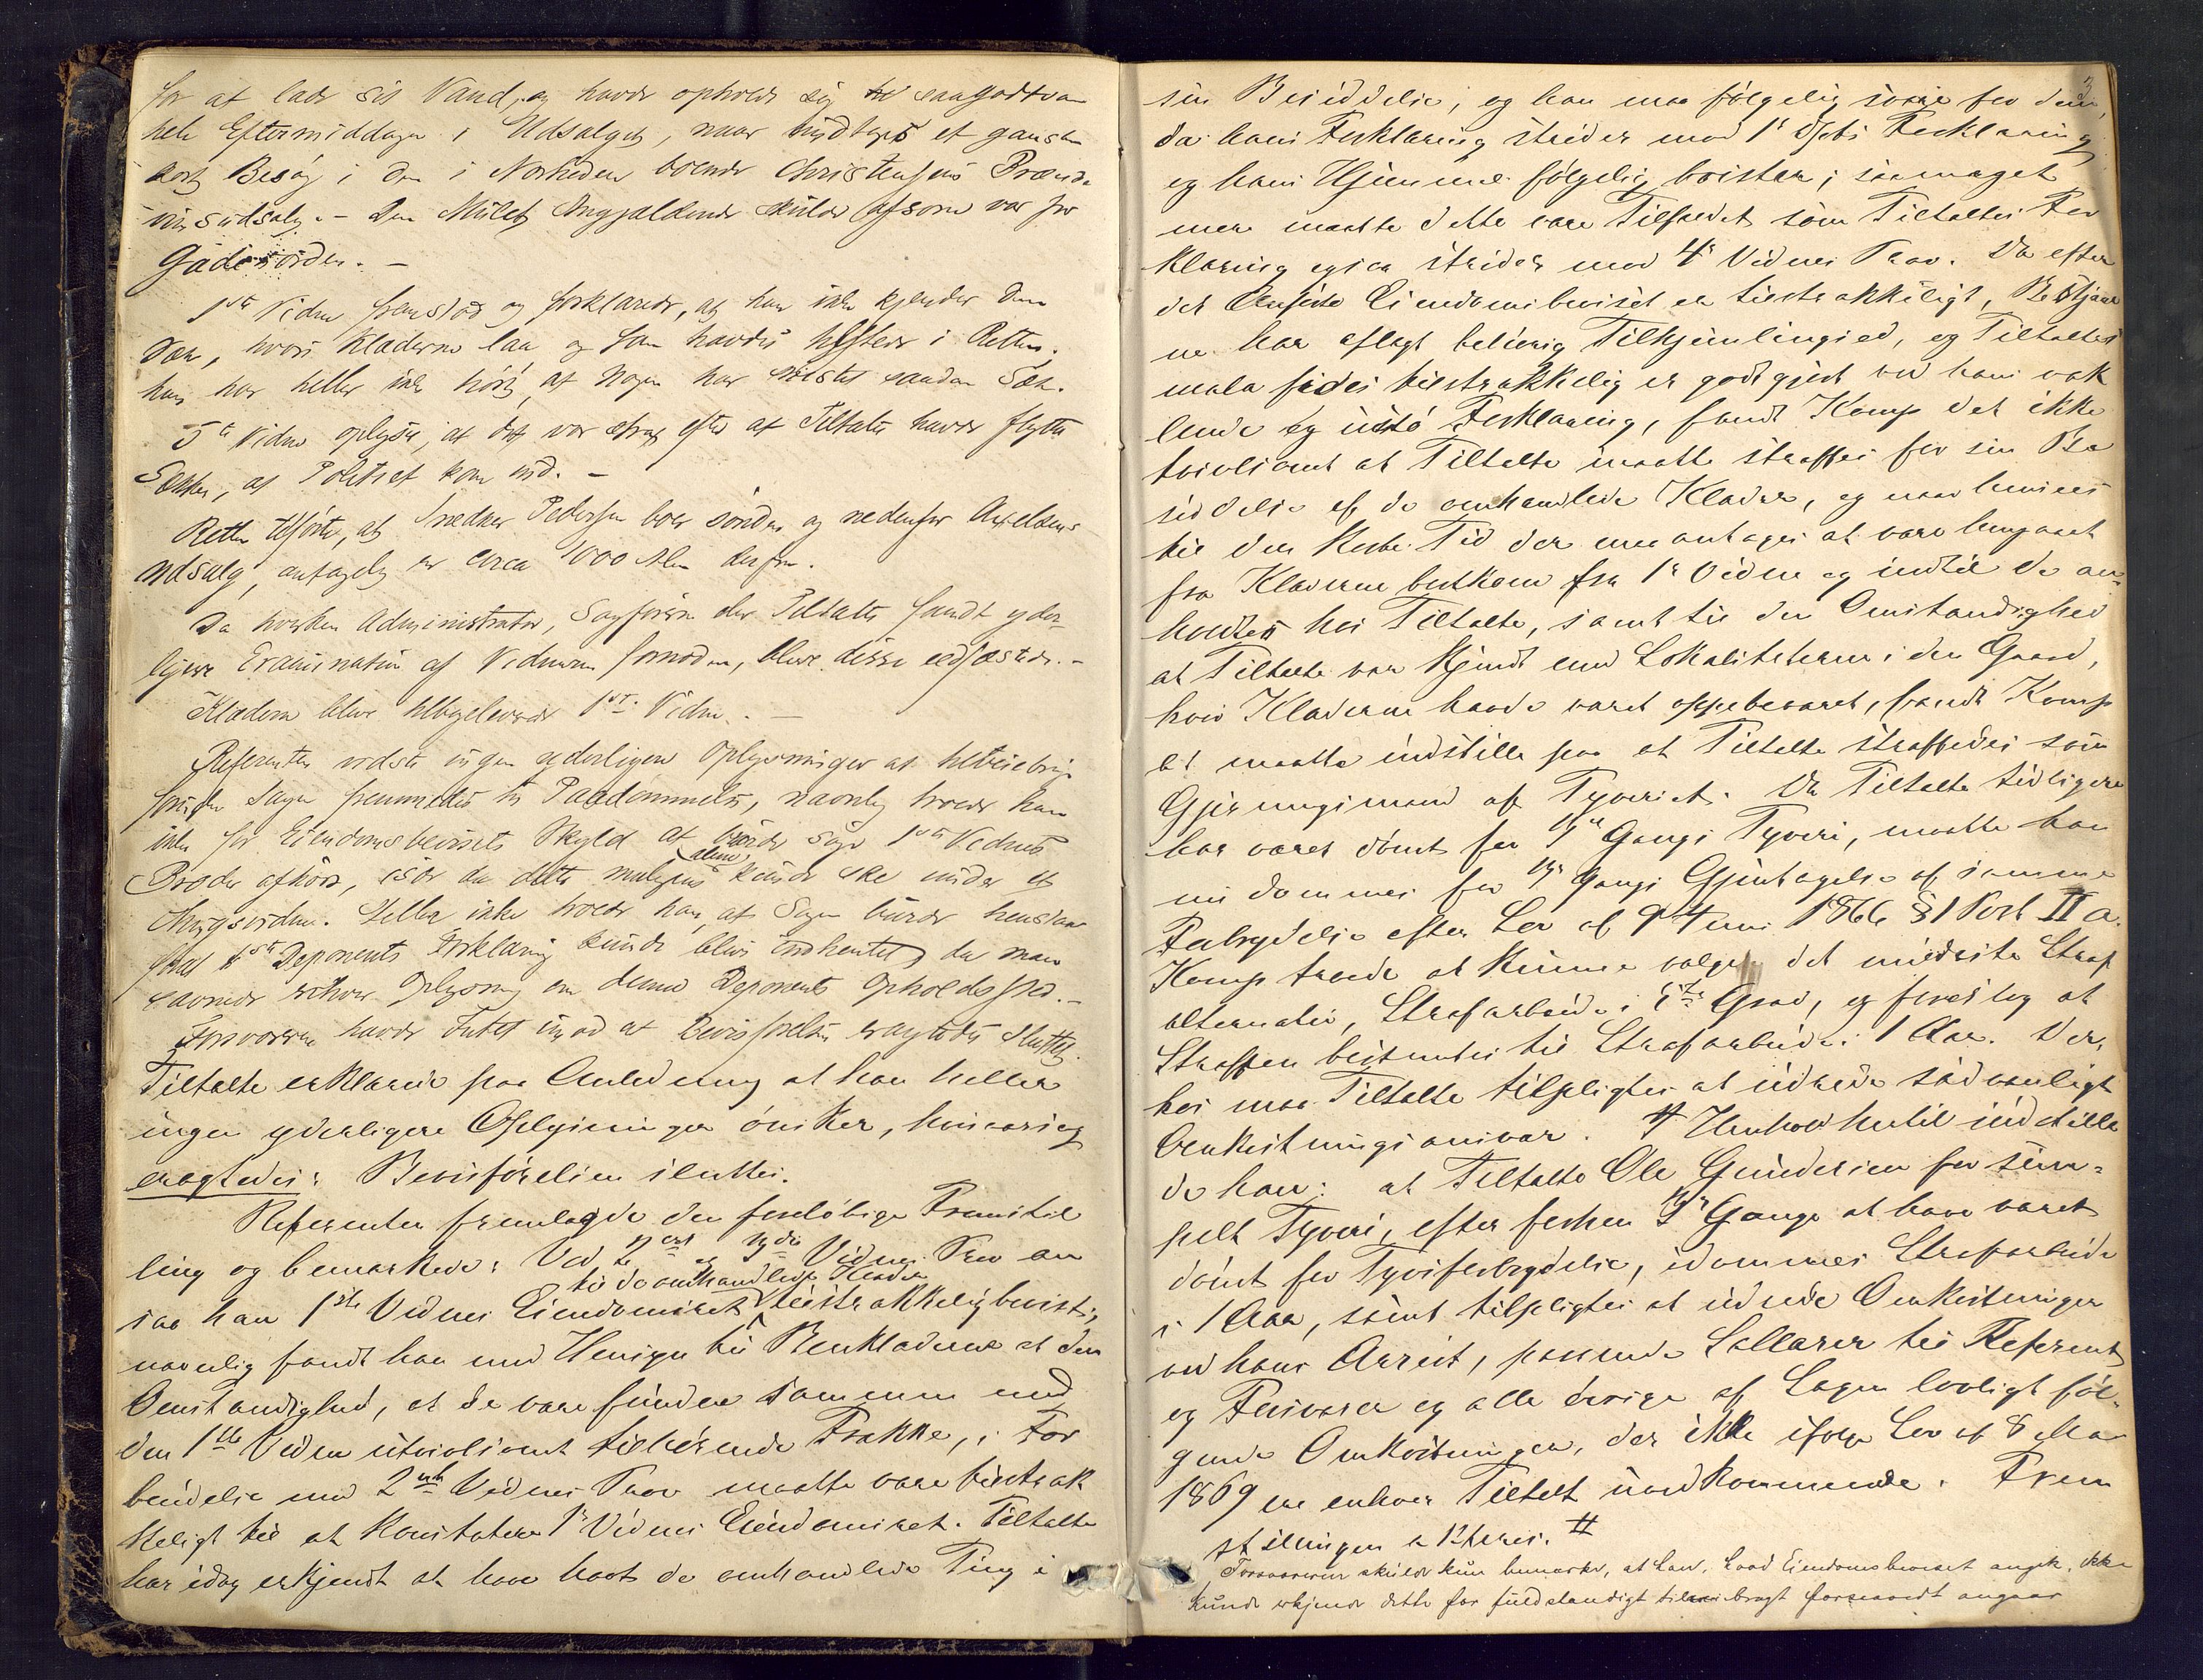 for at lade sit Vand, og havde opholdt sig saagodtsom
hele Eftermiddagen i Udsalget, naar undtages et ganske
kort Besøg i den i Nærheden boende Christensens Brænde
vinsudsalg. – Den Mulct Angjældende skulde afsone var for
Gadeuorden. –
1ste Vidne fremstod og forklarede, at han ikke kjender den
Sæk, hvori Klæderne laa og som havdes tilstede i Retten,
han har heller ikke hørt, at Nogen har mistet saadan Sæk.
5te Vidne oplyste, at det var strax efter at Tiltalte havde flyttet
Sækken, at Politiet kom ind. –
Retten tilførte, at Snedker Pedersen boer søndre og nedenfor Axelsens
Udsalg, antagelig er circa 1000 Alen derfra.
Da hverken Administrator, Sagføreren eller Tiltalte fandt yder-
ligere Examination af Vidnerne fornøden, bleve disse edfæstede. –
Klæderne bleve tilbageleverede 1ste Vidne. –
Referenten vidste ingen yderligere Oplysninger at tilveiebringe
førinden Sagen fremmedes til Paadømmelse, navnlig troede han
ikke for Eiendomsbevisets Skyld at burde søge 1ste Vidnes
Broder afhørt, især da dette muligens alene kunde ske under et
Thingsvidne. Heller ikke troede han, at Sagen burde henstaae
forat 1ste Deponents Forklaring kunde blive indhentet, da man
savnede enhver Oplysning om denne Deponents Opholdssted. –
Forsvareren havde Intet imod at Bevisførelsen eragtedes sluttet.
Tiltalte erklærede paa Anledning at han heller
ingen yderligere Oplysninger ønsker, hvisaarsag
eragtedes: Bevisførelsen sluttes.
Referenten fremlagde den foreløbige Fremstil
ling og bemærkede: Ved 2det og 3die Vidnes Prov an
saa han 1ste Vidnes Eiendomsret til de omhandlede Klæder tilstrækkelig bevist;
navnlig fandt han med Hensyn til Benklæderne at den
Omstændighed, at de vare fundne sammen med
den 1ste Vidne utvivlsomt tilhørende Frakke, i For
bindelse med 2det Vidnes Prov maatte være tilstræk
keligt til at konstatere 1s Vidnes Eiendomsret. Tiltalte
har idag erkjendt at have havt de omhandlede Ting i
3
sin Besiddelse, og han maa følgelig svare for dem,
da hans Forklaring strider mod 1s Dpts Forklaring
og hans Hjemmel følgelig brister; saameget
mere maatte dette være Tilfældet som Tiltaltes For
klaring ogsaa strider mod 4s Vidnes Prov. Da efter
det Anførte Eiendomsbeviset er tilstrækkeligt, Bestjaal
ne har aflagt behørig Tilhjemlingsed, og Tiltaltes
mala fides tilstrækkelig er godtgjort ved hans vak
lende og usto Forklaring, fandt Komp det ikke
tvivlsomt at Tiltalte maatte straffes for sin Be
siddelse af de omhandlede Klæder, og naar henses
til den korte Tid der maa antages at være hengaaet
fra Klæderne bortkom fra 1s Vidne og indtil de an
holdtes hos Tiltalte, samt til den Omstændighed
at Tiltalte var kjendt med Lokaliteterne i den Gaard,
hvis Klæderne havde været oppebevaret, fandt Komp
at maatte indstille paa at Tiltalte straffedes som
Gjerningsmand af Tyveriet. Da Tiltalte tidligere
har været dømt for Gangs Tyveri, maatte han
nu dømmes for Gangs Gjentagelse af samme
Forbrydelse efter Lov af 9 Juni 1866 § 1 Post II a.
Komp troede at kunne vælge det mildeste Straf
alternativ, Strafarbeide i 5te Grad, og foreslog at
Straffen bestemtes til Strafarbeide i 1 Aar. Der,
hos maa Tiltalte tilpligtes at udrede sædvanligt
Omkostningsansvar. I Henhold hertil indstille
de han: at Tiltalte Ole Gundersen for sim-
pelt Tyveri, efter forhen Gange at have været
dømt for Tyvsforbrydelse, idømmes Strafarbeide
i 1 Aar, samt tilpligtes at udrede Omkostninger
ved hans Arrest, passende Sallarer til Referent
og Forsvarer og alle øvrige af Sagen lovligt føl-
gende Omkostninger, der ikke ifølge Lov af 8 Mai
1869 er enhver Tiltalt uvedkommende. Frem
stillingen
Forsvareren skulde kun bemærke, at han, hvad Eiendomsbeviset angik, ikke
kunde erkjende dette for fuldstændigt tilveiebragt forsaavidt angaar